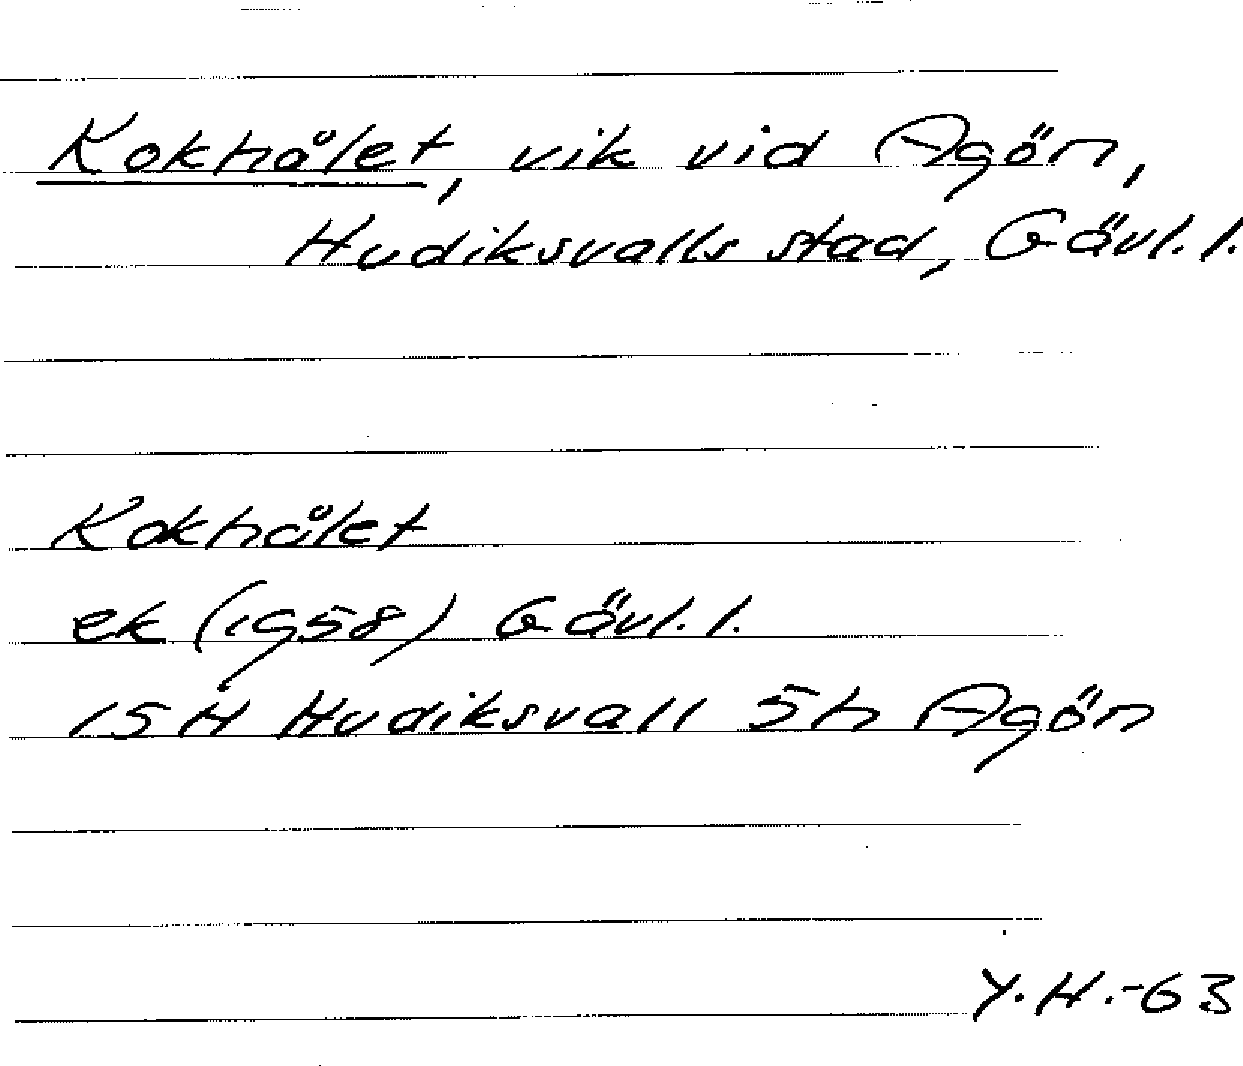 Kokhålet, vik vid Agön,
Hudiksvalls stad, Gävl. l.
Kokhålet
ek (1958) Gävl. l.
15H Hudiksvall 5h Agön
Y. H. -63